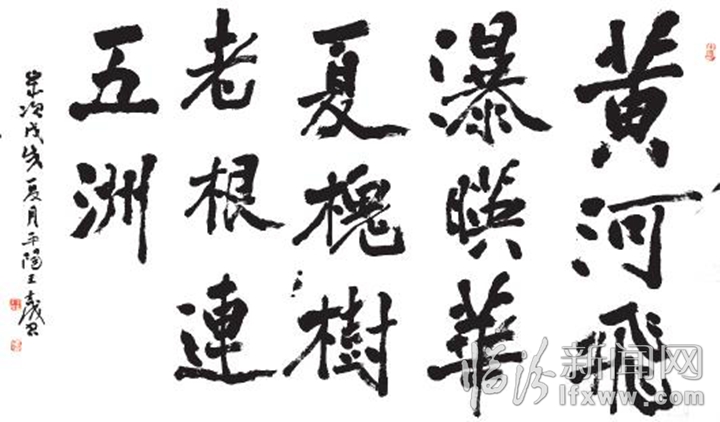 黄河飛
瀑暎華
夏槐樹
老根連
五洲
歲次戊戌夏月平陽王
临汾新闻网
www.lfxww.com